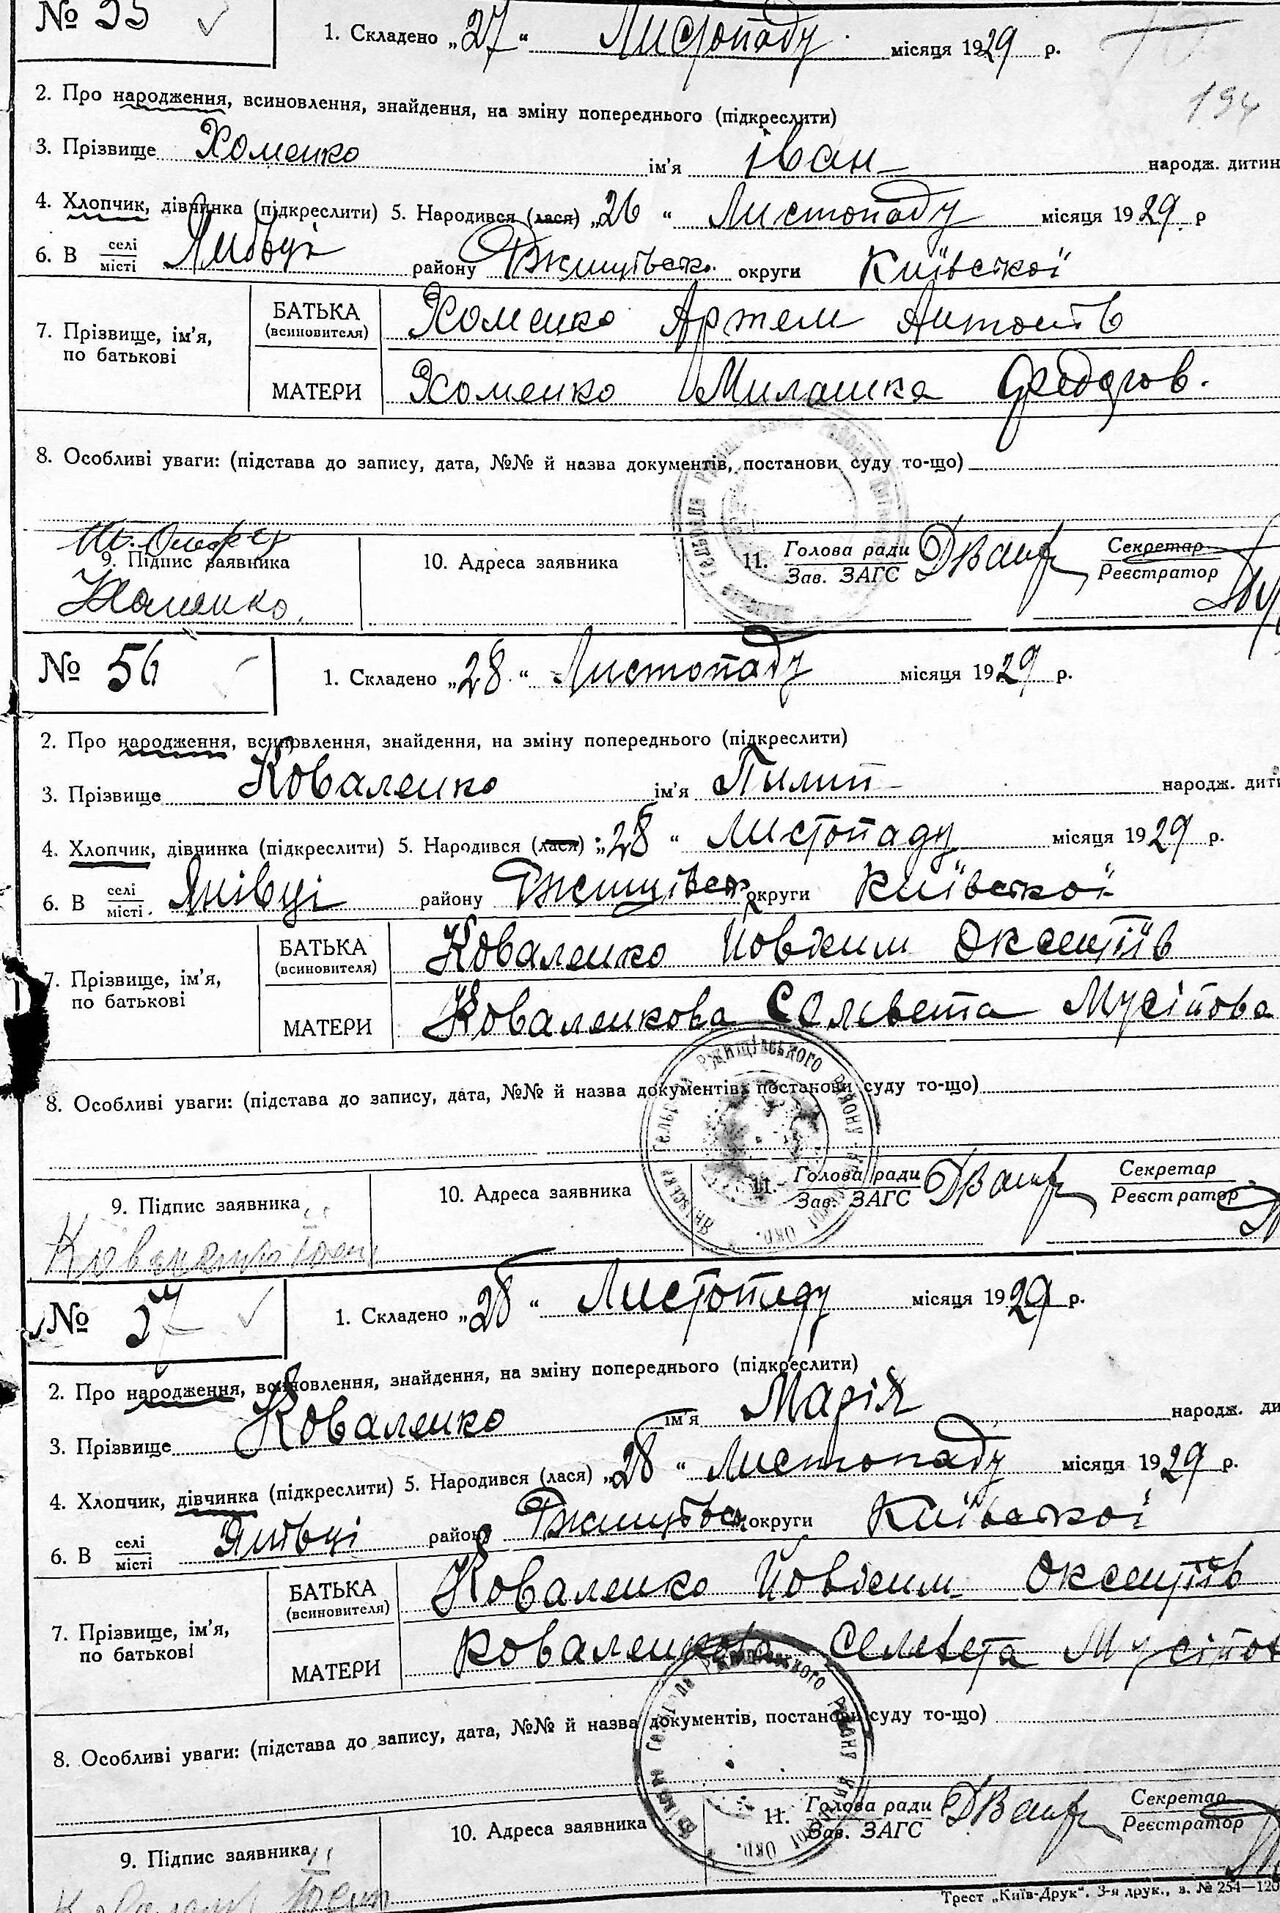 № 55
1. Складено „27“ Листопаду місяця 1929 р.
194
2. Про народження, всиновлення, знайдення, на зміну попереднього (підкреслити)
3. Прізвище Хоменко ім'я Іван народж. дитин
4. Хлопчик, дівчинка (підкреслити) 5. Народився (лася) „26“ Листопаду місяця 1929 р
6. В селі місті Янівці району Ржищівськ. округи Київської
7. Прізвище, ім'я, по батькові
БАТЬКА (всиновителя) Хоменко Артем Антонів
МАТЕРИ Хоменко Милашка Федоров.
8. Особливі уваги: (підстава до запису, дата, №№ й назва документів, постанови суду то-що)
9. Підпис заявника Хоменко
10. Адреса заявника
11. Голова ради Зав. ЗАГС
Секретар Реєстратор
№ 56
1. Складено „28“ Листопаду місяця 1929 р.
2. Про народження, всиновлення, знайдення, на зміну попереднього (підкреслити)
3. Прізвище Коваленко ім'я Пилип народж. дити
4. Хлопчик, дівчинка (підкреслити) 5. Народився (лася) „28“ Листопаду місяця 1929 р.
6. В селі місті. Янівці району Ржищівськ округи Київської
7. Прізвище, ім'я, по батькові
БАТЬКА (всиновителя) Коваленко Йовхим Оксентів
МАТЕРИ Коваленкова Селевета Мусіпова
8. Особливі уваги: (підстава до запису, дата, №№ й назва документів, постанови суду то-що)
Ржищівського району
9. Підпис заявника
10. Адреса заявника
11. Голова ради Зав. ЗАГС
Секретар Реєстратор
№ 57
1. Складено „28“ Листопаду місяця 1929 р.
2. Про народження, всиновлення, знайдення, на зміну попереднього (підкреслити)
3. Прізвище Коваленко ім'я Марія народж. ди
4. Хлопчик, дівчинка (підкреслити) 5. Народився (лася) „28“ Листопаду місяця 1929 р.
6. В селі місті Янівці району Ржищівськ округи Київської
7. Прізвище, ім'я, по батькові
БАТЬКА (всиновителя) Коваленко Йовхим Оксентів
МАТЕРИ Коваленкова Селевета Мусіпов
8. Особливі уваги: (підстава до запису, дата, №№ й назва документів, постанови суду то-що)
9. Підпис заявника
10. Адреса заявника
11. Голова ради Зав. ЗАГС
Секретар Реєстратор
Трест „Київ-Друк“. 3-я друк., з. № 254—120